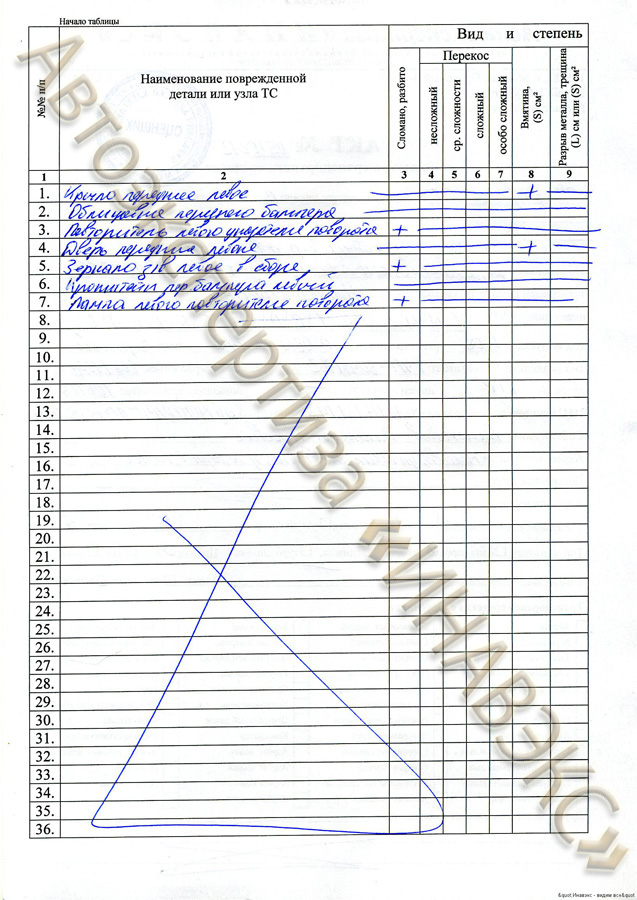 Начало таблицы
Вид и степень
№№ п/п
Наименование поврежденной
детали или узла ТС
Сломано, разбито
Перекос
несложный
ср. сложности
сложный
особо сложный
Вмятина,
(S) см²
Разрыв металла, трещина
(L) см или (S) см²
1 2 3 4 5 6 7 8 9
1. Крыло переднее левое +
2. Облицовка переднего бампера
3. Повторитель левого указателя поворота +
4. Дверь передняя левая +
5. Зеркало з/в левое в сборе +
6. Кронштейн пер бампера левый
7. Лампа левого повторителя поворота +
8.
9.
10.
11.
12.
13.
14.
15.
16.
17.
18.
19.
20.
21.
22.
23.
24.
25.
26.
27.
28.
29.
30.
31.
32.
33.
34.
35.
36.
Автоэкспертиза «ИНАВЭКС»
&quot;Инавэкс - видим все&quot;